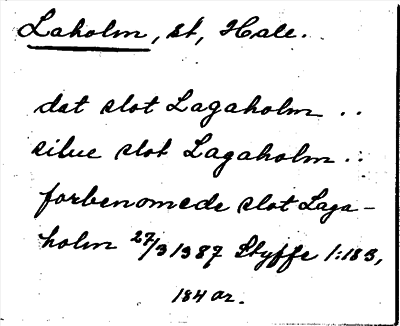 Laholm, st, Hall.
dat slot Lagaholm ..
silue slot Lagaholm ..
forbenomede slot Laga-
holm 27/3 1387 Styffe 1:183,
184 or.